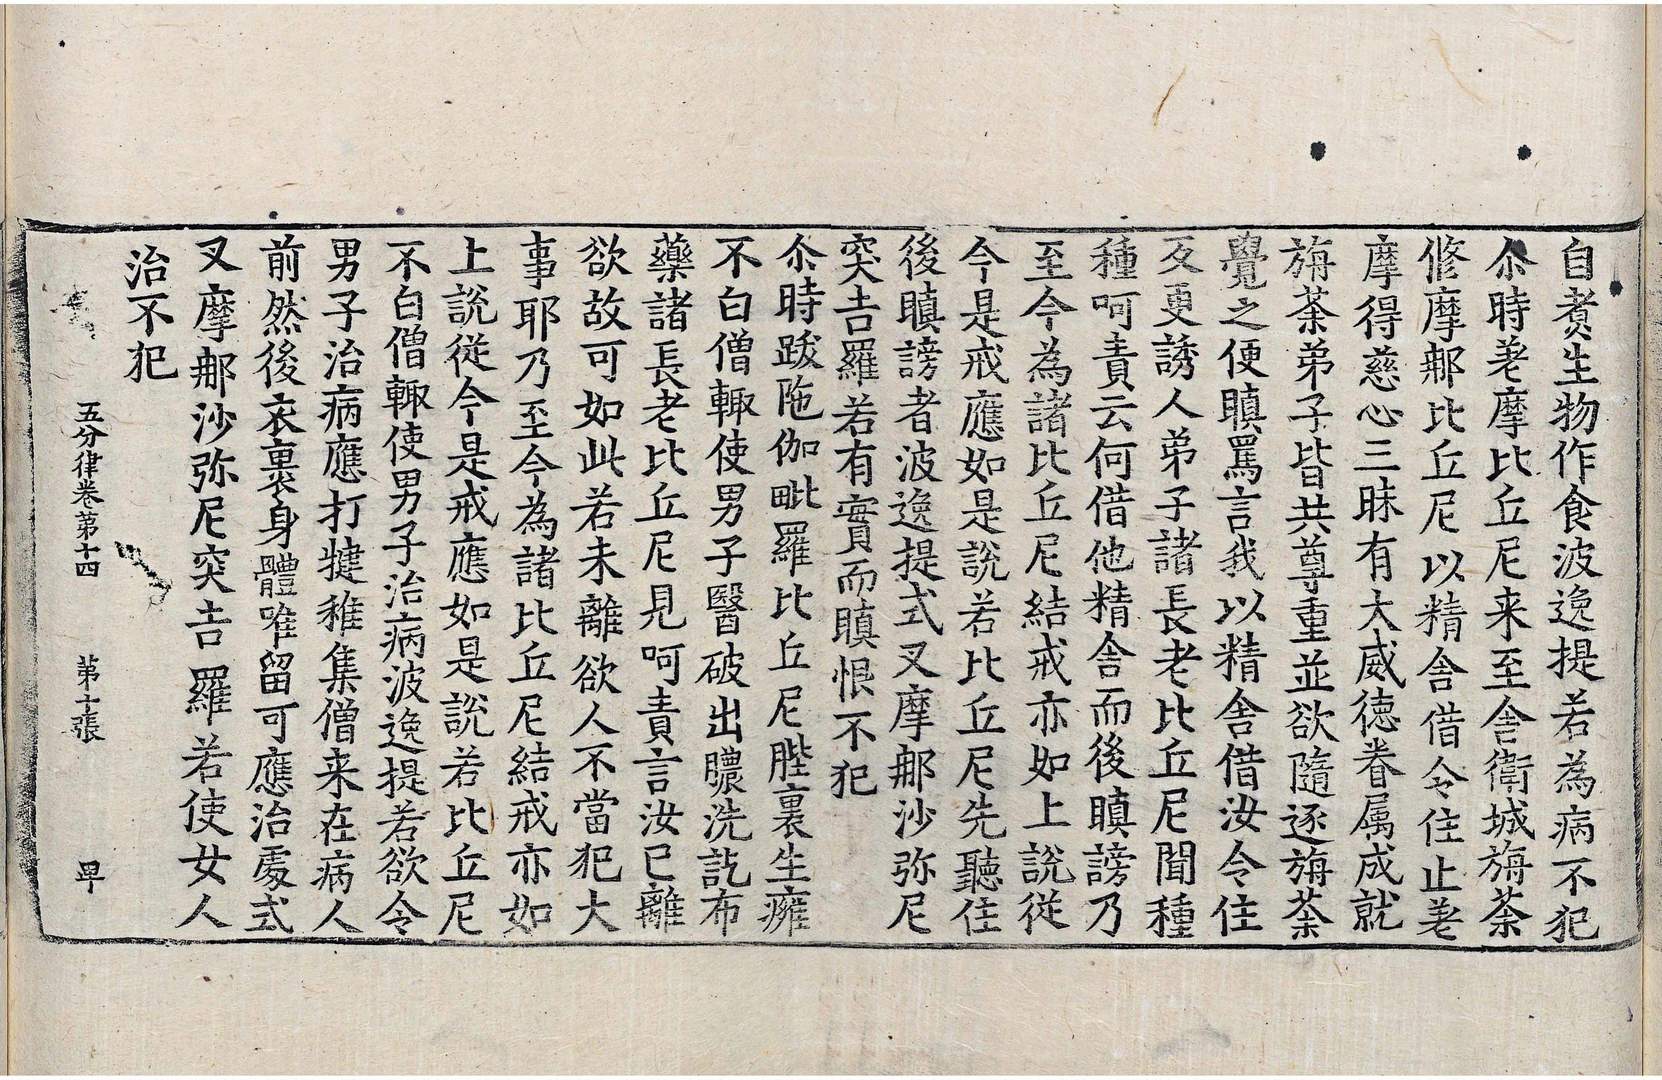 自煑生物作食波逸提若為病不犯
尒時差摩比丘尼来至舎衛城旃荼
脩摩那比丘尼以精舎借令住止差
摩得慈心三昧有大威徳眷属成就
旃荼弟子皆共尊重並欲隨逐旃荼
覺之便瞋罵言我以精舎借汝令住
反更誘人弟子諸長老比丘尼聞種
種呵責云何借他精舎而後瞋謗乃
至今為諸比丘尼結戒亦如上說従
今是戒應如是說若比丘尼先聽住
後瞋謗者波逸提式叉摩那沙弥尼
突吉羅若有實而瞋恨不犯
尒時跋陁伽毗羅比丘尼䏶裏生癰
不白僧輙使男子醫破出膿洗訖布
藥諸長老比丘尼見呵責言汝已離
欲故可如此若未離欲人不當犯大
事耶乃至今為諸比丘尼結戒亦如
上說従今是戒應如是說若比丘尼
不白僧輙使男子治病波逸提若欲令
男子治病應打揵稚集僧来在病人
前然後衣裹身體唯留可應治處式
叉摩那沙弥尼突吉羅若使女人
治不犯
五分律卷第十四　第十張　卑